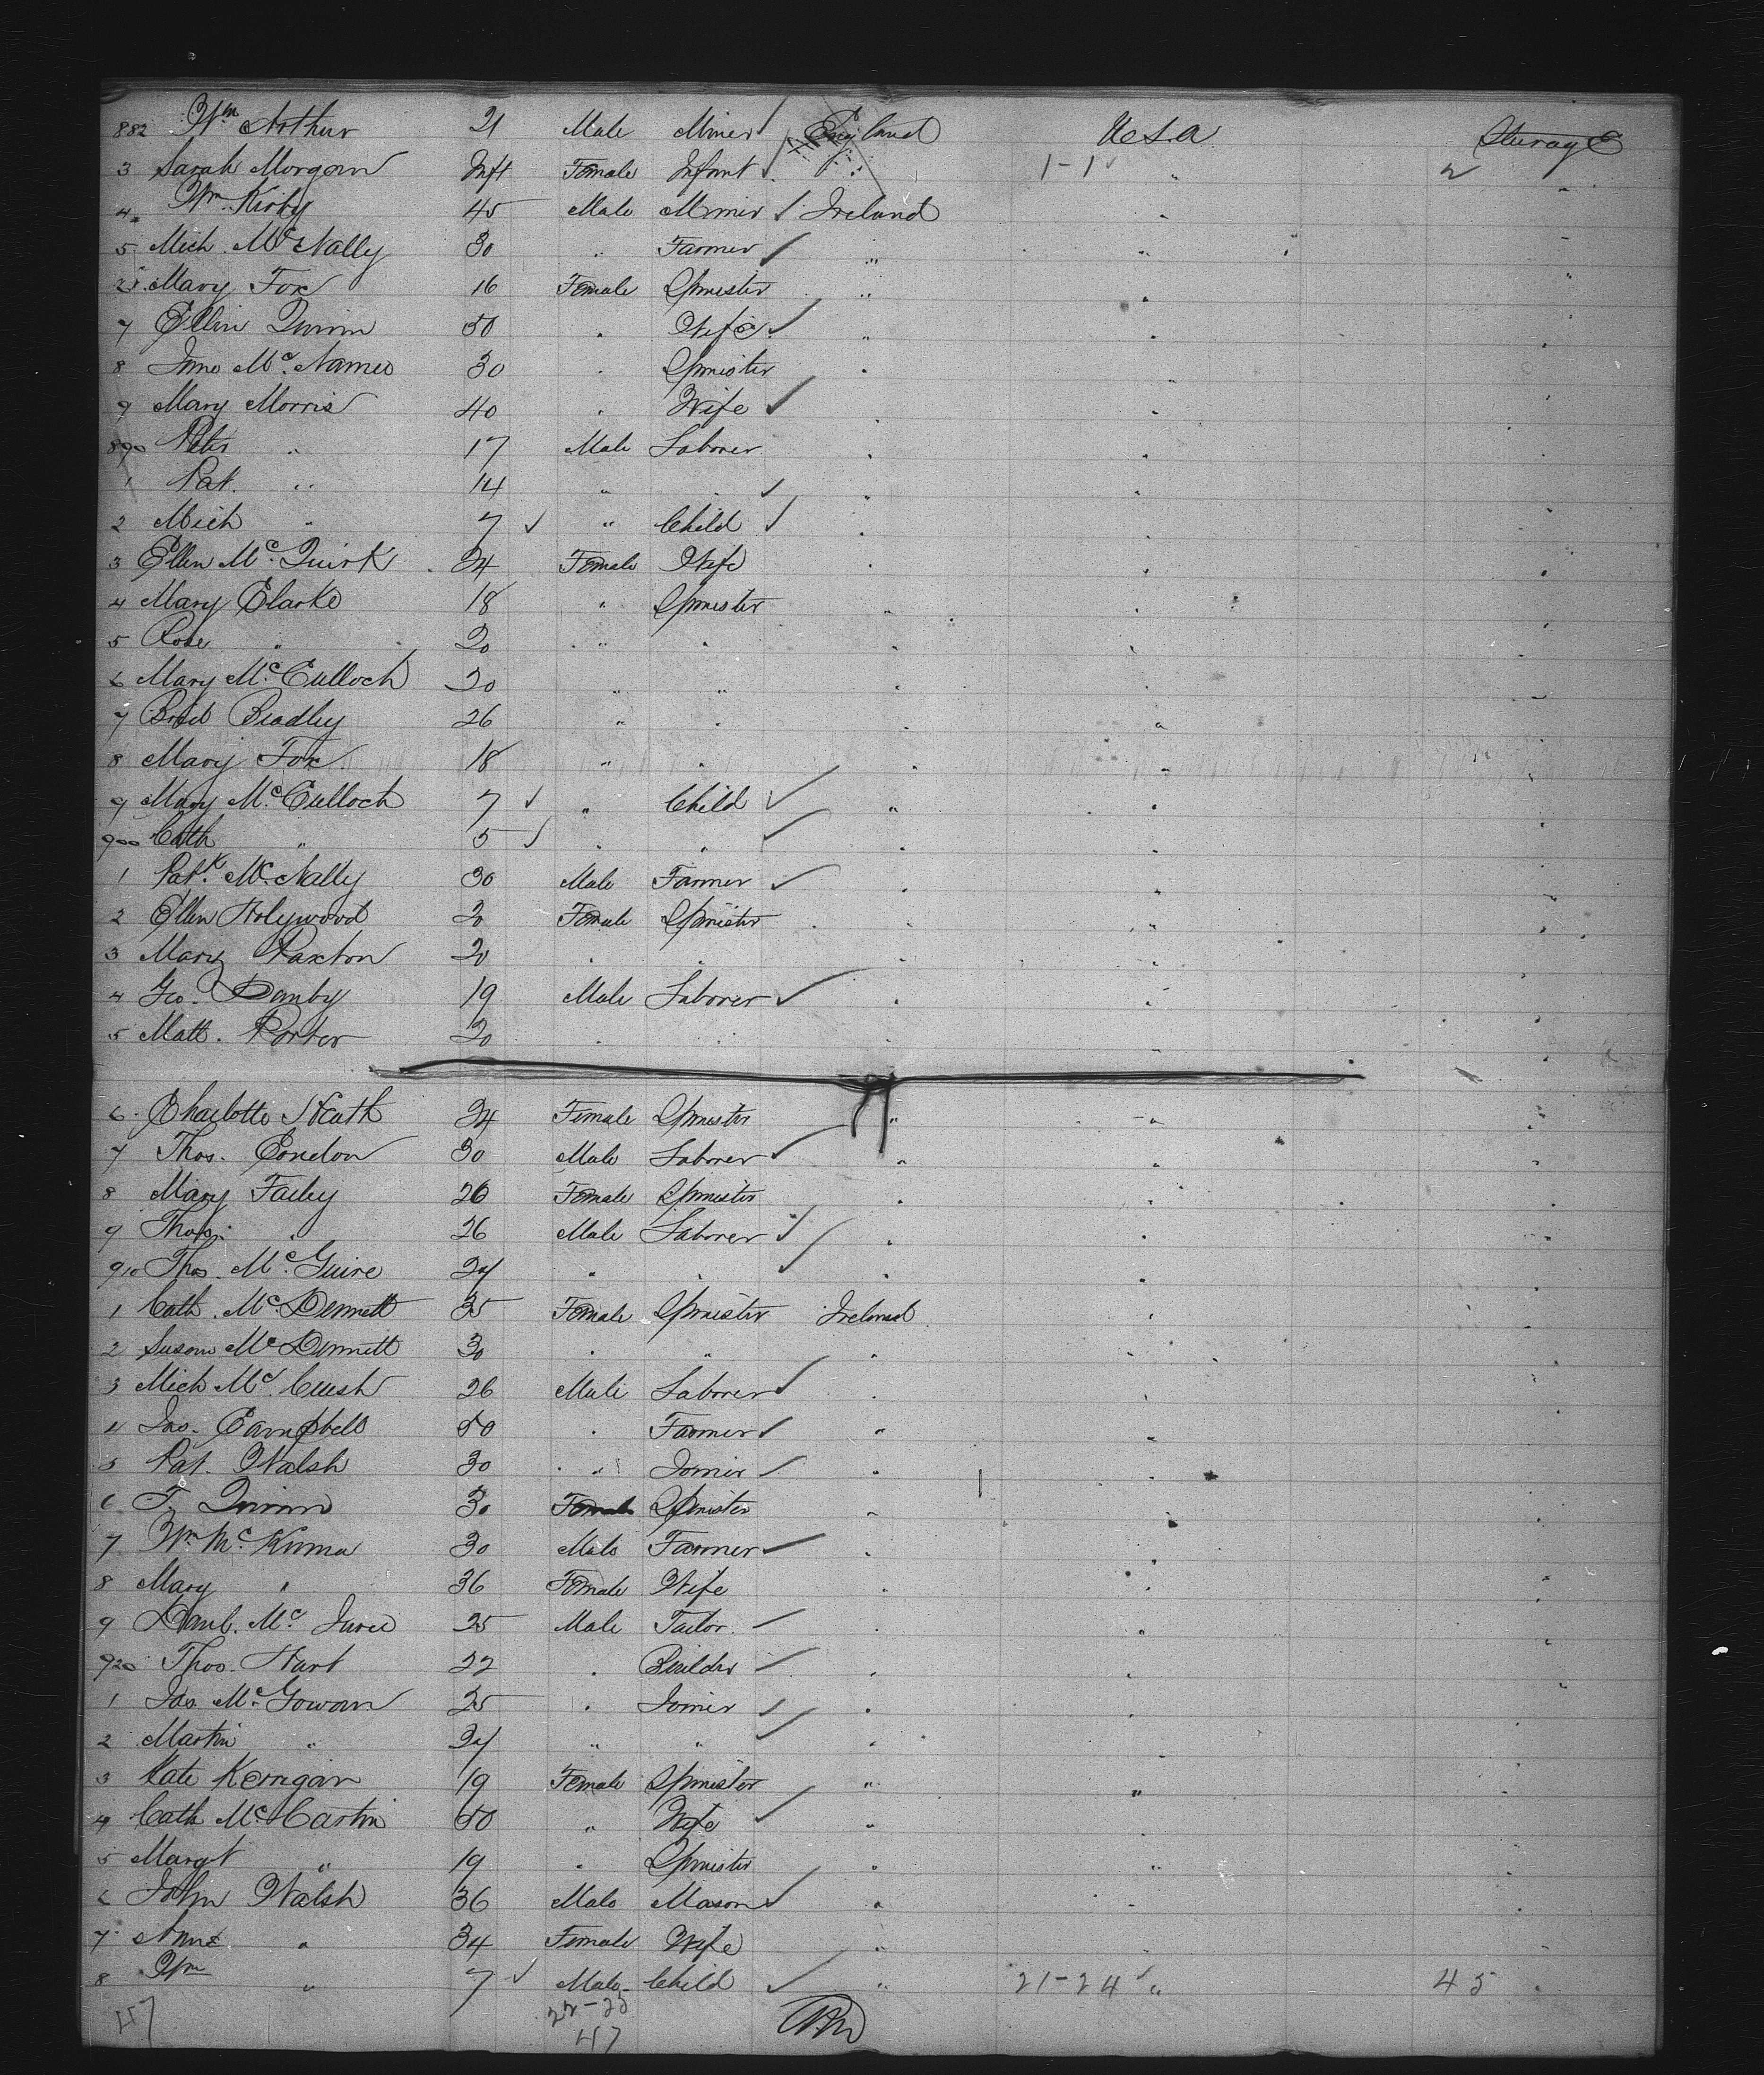 882 Wm Arthur 21 Male Miner England U.S.A. Steerage
3 Sarah Morgan Inft Female Infant " 1-1 " 2 "
4 Wm Kirby 45 Male Miner Ireland " "
5 Mich. McNally 30 " Farmer " " "
Mary Fox 16 Female Spinster " " "
7 Ellen Quinn 50 " Wife " " "
8 McNamee 30 " Spinster " " "
9 Mary Morris 40 " Wife " " "
890 Peter " 17 Male Laborer " " "
1 Pat. " 14 " " " " "
2 Mich " 7 " Child " " "
3 Ellen McQuirk 24 Female Wife " " "
4 Mary Clarke 18 " Spinster " " "
5 Rose " 20 " " " " "
6 Mary McCulloch 20 " " " " "
7 Brid Bradley 26 " " " " "
8 Mary Fox 18 " " " " "
9 Mary McCulloch 7 " Child " " "
900 Cath " 5 " " " " "
1 Patk. McNally 30 Male Farmer " " "
2 Ellen Holywood 20 Female Spinster " " "
3 Mary Paxton 20 " " " " "
4 Geo. Danby 19 Male Laborer " " "
5 Matt. Porter 20 " " " " "
6 Charlotte Heath 24 Female Spinster " " "
7 Thos. Condon 30 Male Laborer " " "
8 Mary Failey 26 Female Spinster " " "
9 Thos. " 26 Male Laborer " " "
910 Thos. McGuire 24 " " " " "
1 Cath. McDermett 35 Female Spinster Ireland " "
2 Susan McDermett 30 " " " " "
3 Mich Mc. Cuish 26 Male Laborer " " "
4 Jas. Campbell 50 " Farmer " " "
5 Pat. Walsh 30 " Joiner " " "
6 T. Quinn 30 Female Spinster " " "
7 Wm. McKenna 30 Male Farmer " " "
8 Mary " 36 Female Wife " " "
9 Danl. Mc 25 Male Tailor " " "
920 Thos. Hart 22 " Builder " " "
1 Jas. McGowan 25 " Joiner " " "
2 Martin " 24 " " " " "
3 Kate Kerrigan 19 Female Spinster " " "
4 Cath McCartin 50 " Wife " " "
5 Margt " 19 " Spinster " " "
6 John Walsh 36 Male Mason " " "
7 Anne " 34 Female Wife " " "
8 Wm " 7 Male Child " 21-24 " 45 "
47 22-25
47